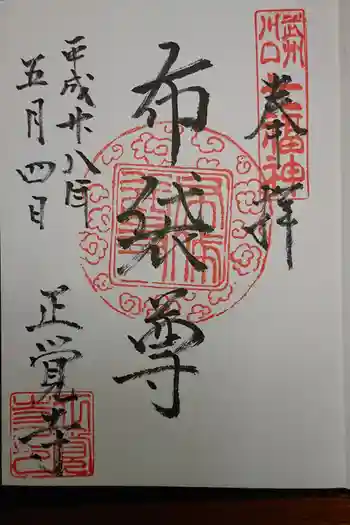 武州川口七福神
奉拝
布袋尊
平成廿八年
五月四日
正覚寺